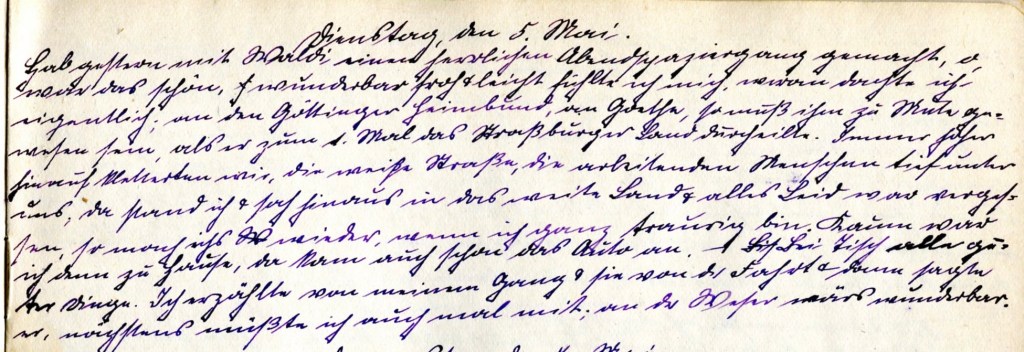 Dienstag, den 5. Mai.
Hab gestern mit Waldi einen herrlichen Abendspaziergang gemacht, o,
war das schön, so wunderbar froh & leicht fühlte ich mich, woran dachte ich
eigentlich; an den Göttinger Hainbund, an Goethe, so muß ihm zu Mute ge-
wesen sein, als er zum 1. Mal das Straßburger Land durcheilte. Immer höher
hinauf kletterten wir, die weiße Straße, die arbeitenden Menschen tief unter
uns, da stand ich & sah hinaus in das weite Land & alles Leid war verges-
sen, so mach ichs wieder, wenn ich ganz traurig bin. Kaum war
ich dann zu Hause, da kam auch schon das Auto an. Bei Tisch alle gu-
ter Dinge. Ich erzählte von meinem Gang & sie von der Fahrt & dann sagte
er, nächstens müßte ich auch mal mit, an der Weser wärs wunderbar.